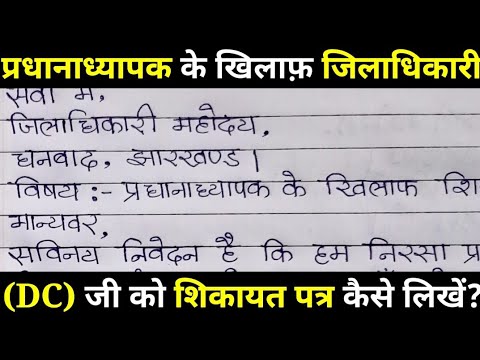 प्रधानाध्यापक के खिलाफ़ जिलाधिकारी
सेवा में,
जिलाधिकारी महोदय,
धनबाद, झारखण्ड।
विषय :- प्रधानाध्यापक के खिलाफ शि
मान्यवर,
सविनय निवेदन है कि हम निरसा प्र
(DC) जी को शिकायत पत्र कैसे लिखें?